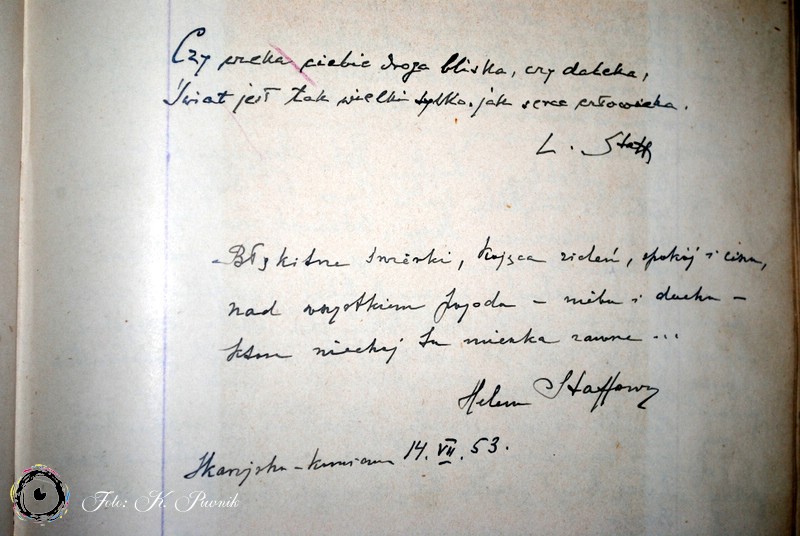 Czy czeka ciebie droga bliska, czy daleka,
Świat jest tak wielki tylko, jak serce człowieka.
L. Staff
Błękitne świerki, kojąca zieleń, spokój i cisza,
nad wszystkiem pogoda – nieba i ducha –
która niechaj tu mieszka zawsze ...
Helena Staffowa
Skarżysko-Kamienna 14. VII. 53.
Foto: K. Piwnik